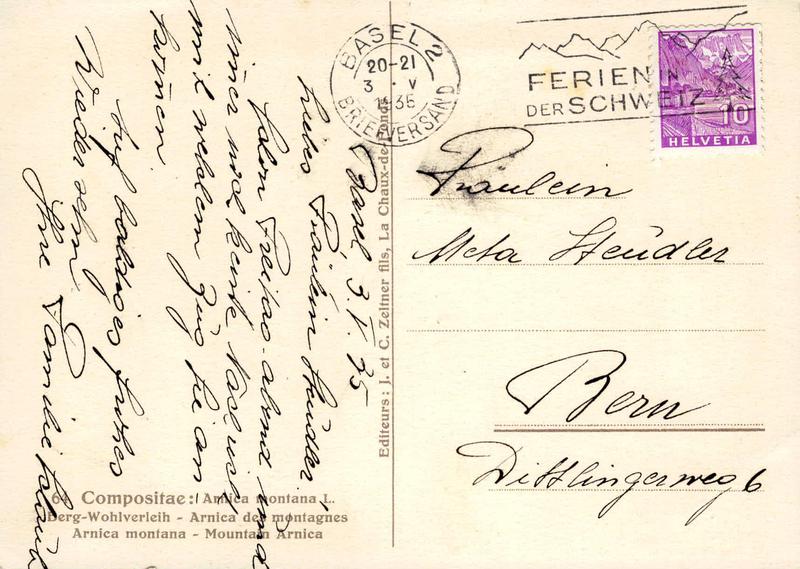 BASEL 2
20-21
3 · V
1935
BRIEFVERSAND
FERIEN IN
DER SCHWEIZ
10
HELVETIA
Basel 3. V. 35
Liebes Fräulein Steudler!
haben Freitag abend und
immer noch keine Nachricht
mit welchem Zug Sie an
kommen.
Auf baldiges frohes
Wiedersehn
Ihre Familie
Editeurs: J. et C. Zeltner fils, La Chaux-de-Fonds
Fräulein
Meta Steudler
Bern
Dittlingerweg 6
64 Compositae: Arnica montana L.
Berg-Wohlverleih - Arnica des montagnes
Arnica montana - Mountain Arnica